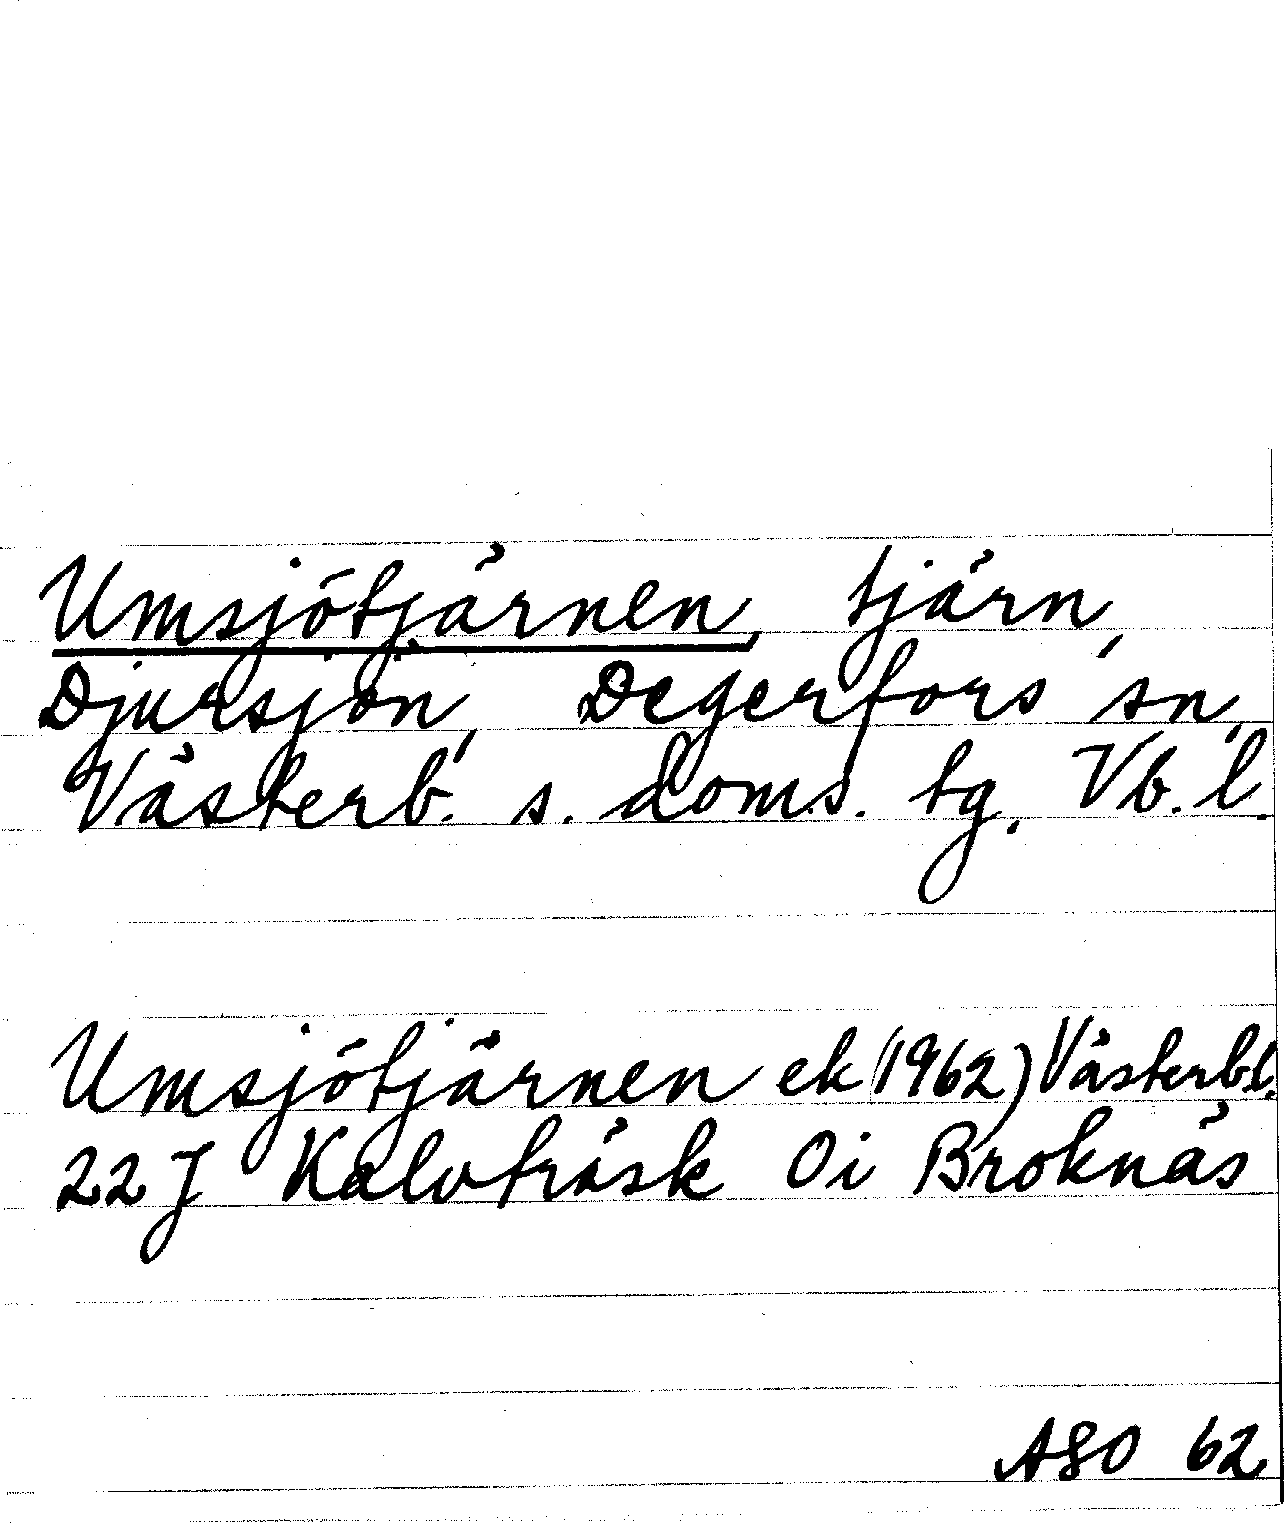 Umsjötjärnen, tjärn,
Djursjön, Degerfors sn,
Västerb. s. doms. tg. Vb. l.
Umsjötjärnen ek (1962) Västerb l.
22 J Kalvträsk 0i Broknäs
ASO 62